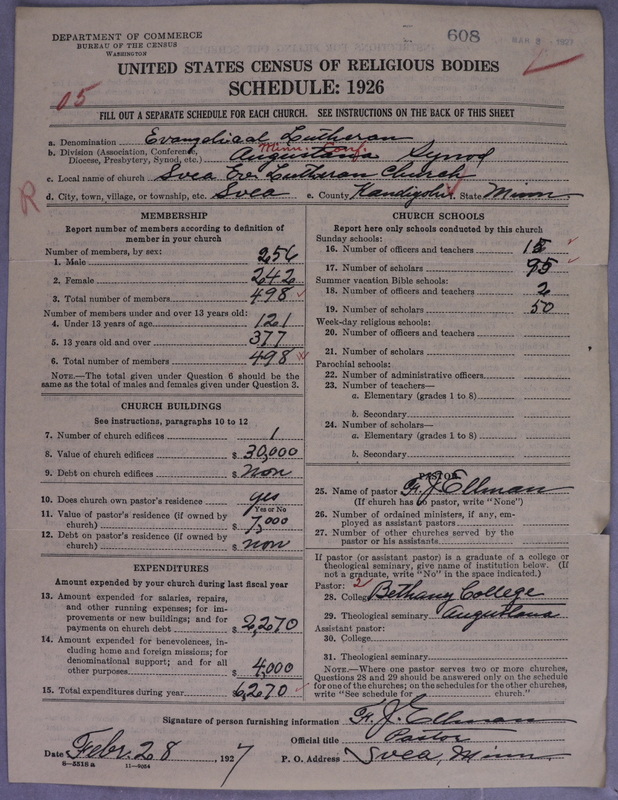 DEPARTMENT OF COMMERCE
BUREAU OF THE CENSUS
WASHINGTON
608
MAR 3 - 1927
UNITED STATES CENSUS OF RELIGIOUS BODIES
SCHEDULE: 1926
05
FILL OUT A SEPARATE SCHEDULE FOR EACH CHURCH. SEE INSTRUCTIONS ON THE BACK OF THIS SHEET
a. Denomination Evangelical Lutheran
b. Division (Association, Conference, Minn. Conf.
Diocese, Presbytery, Synod, etc.) Augustana Synod
c. Local name of church Svea Ev. Lutheran Church
R
d. City, town, village, or township, etc. Svea e. County Kandiyohi f. State Minn
MEMBERSHIP
Report number of members according to definition of
member in your church
Number of members, by sex:
1. Male 256
2. Female 242
3. Total number of members 498
Number of members under and over 13 years old:
4. Under 13 years of age 121
5. 13 years old and over 377
6. Total number of members 498
NOTE.—The total given under Question 6 should be
same as the total of males and females given under Question 3.
CHURCH BUILDINGS
See instructions, paragraphs 10 to 12
7. Number of church edifices 1
8. Value of church edifices $ 30,000
9. Debt on church edifices $ non
10. Does church own pastor's residence yes
Yes or No
11. Value of pastor's residence (if owned by
church) $ 7,000
12. Debt on pastor's residence (if owned by
church) $ non
EXPENDITURES
Amount expended by your church during last fiscal year
13. Amount expended for salaries, repairs,
and other running expenses; for im-
provements or new buildings; and for
payments on church debt $ 2,270
14. Amount expended for benevolences, in-
cluding home and foreign missions; for
denominational support; and for all
other purposes $ 4,000
15. Total expenditures during year $ 6,270
CHURCH SCHOOLS
Report here only schools conducted by this church
Sunday schools:
16. Number of officers and teachers
17. Number of scholars 95
Summer vacation Bible schools:
18. Number of officers and teachers 2
19. Number of scholars 50
Week-day religious schools:
20. Number of officers and teachers
21. Number of scholars
Parochial schools:
22. Number of administrative officers
23. Number of teachers—
a. Elementary (grades 1 to 8)
b. Secondary
24. Number of scholars—
a. Elementary (grades 1 to 8)
b. Secondary
PASTOR
25. Name of pastor Fr. J. Ellman
(If church has no pastor, write "None")
26. Number of ordained ministers, if any, em-
ployed as assistant pastors
27. Number of other churches served by the
pastor or his assistants
If pastor (or assistant pastor) is a graduate of a college or
theological seminary, give name of institution below. (If
not a graduate, write "No" in the space indicated.)
Pastor: 2
28. College Bethany College
29. Theological seminary Augustana
Assistant pastor:
30. College
31. Theological seminary
NOTE.—Where one pastor serves two or more churches,
Questions 28 and 29 should be answered only on the schedule
for one of the churches; on the schedules for the other churches,
write "See schedule for church."
Signature of person furnishing information Fr. J. Ellman
Official title Pastor
Date Febr. 28, 1927 P. O. Address Svea, Minn.
8—5518 a 11—9054